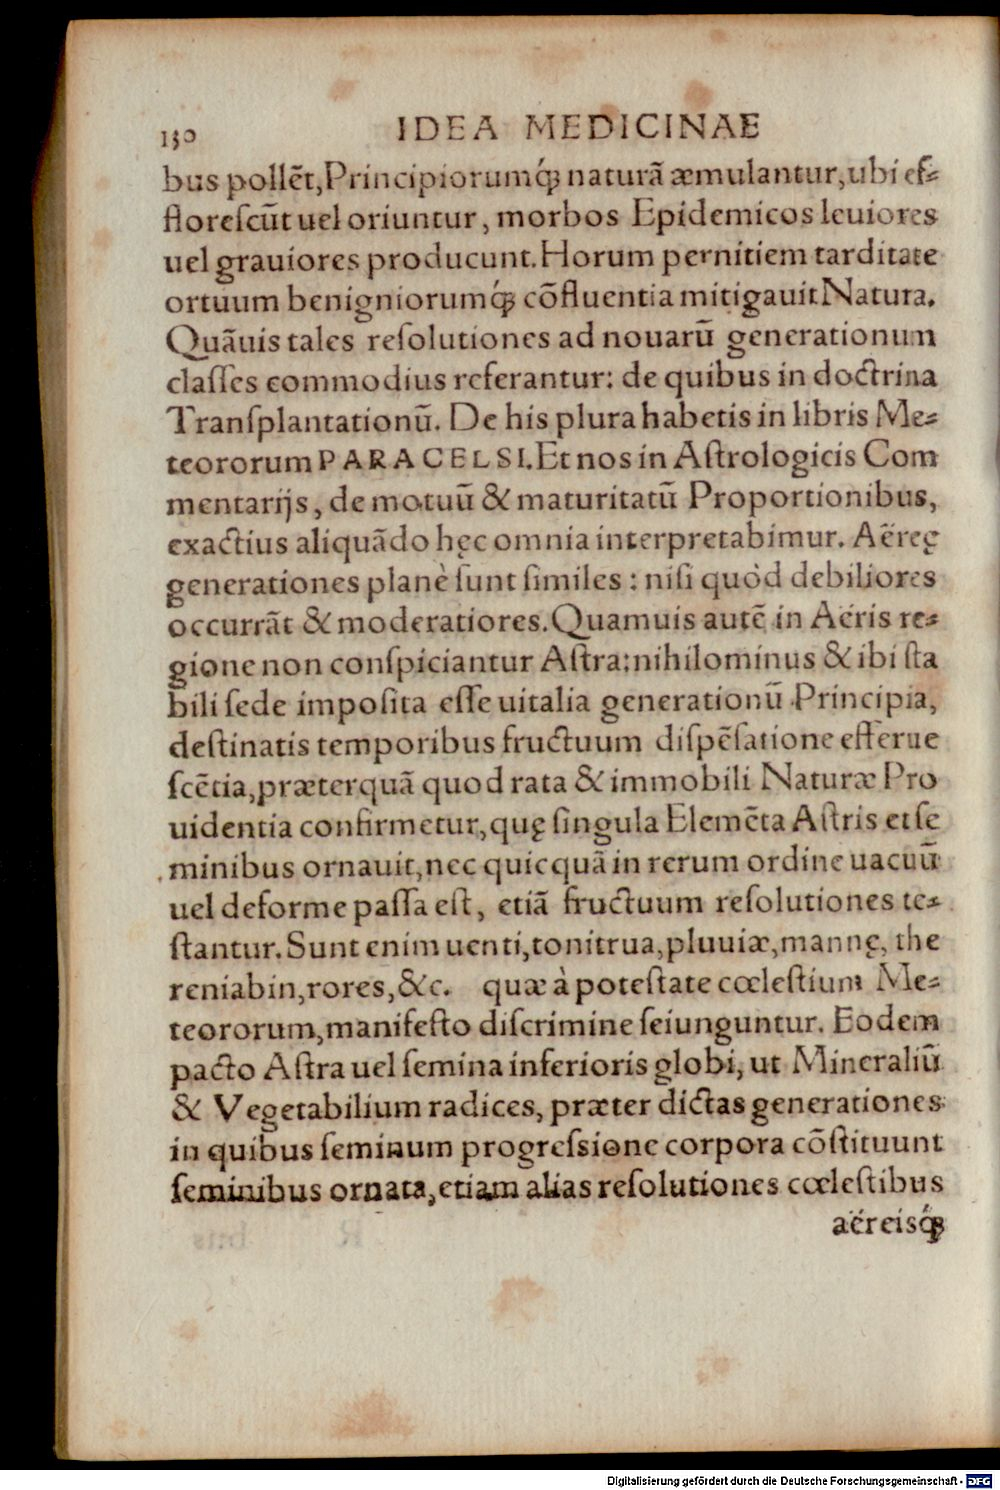 130 IDEA MEDICINAE
bus pollēt,Principiorumq́; naturā æmulantur,ubi ef⸗
floreſcūt uel oriuntur, morbos Epidemicos leuiores
uel grauiores producunt. Horum pernitiem tarditate
ortuum benigniorumq́; cōfluentia mitigauit Natura.
Quāuis tales reſolutiones ad nouarū generationum
claſſes commodius referantur: de quibus in doctrina
Tranſplantationū. De his plura habetis in libris Me⸗
teororum PARACELSI. Et nos in Aſtrologicis Com
mentarijs, de motuū & maturitatū Proportionibus,
exactius aliquādo hęc omnia interpretabimur. Aëreę
generationes planè ſunt ſimiles : niſi quòd debiliores
occurrāt & moderatiores. Quamuis autē in Aëris re⸗
gione non conſpiciantur Aſtra; nihilominus & ibi ſta
bili ſede impoſita eſſe uitalia generationū Principia,
deſtinatis temporibus fructuum diſpēſatione efferue
ſcētia,præterquā quod rata & immobili Naturæ Pro
uidentia confirmetur,quę ſingula Elemēta Aſtris et ſe
minibus ornauit,nec quicquā in rerum ordine uacuū
uel deforme paſſa eſt, etiā fructuum reſolutiones te⸗
ſtantur. Sunt enim uenti,tonitrua,pluuiæ,mannę, the
reniabin,rores,&c. quæ à poteſtate cœleſtium Me⸗
teororum,manifeſto diſcrimine ſeiunguntur. Eodem
pacto Aſtra uel ſemina inferioris globi, ut Mineraliū
& Vegetabilium radices, præter dictas generationes
in quibus ſeminum progreſsione corpora cōſtituunt
ſeminibus ornata,etiam alias reſolutiones cœleſtibus
aëreisq́;
Digitalisierung gefördert durch die Deutsche Forschungsgemeinschaft - DFG